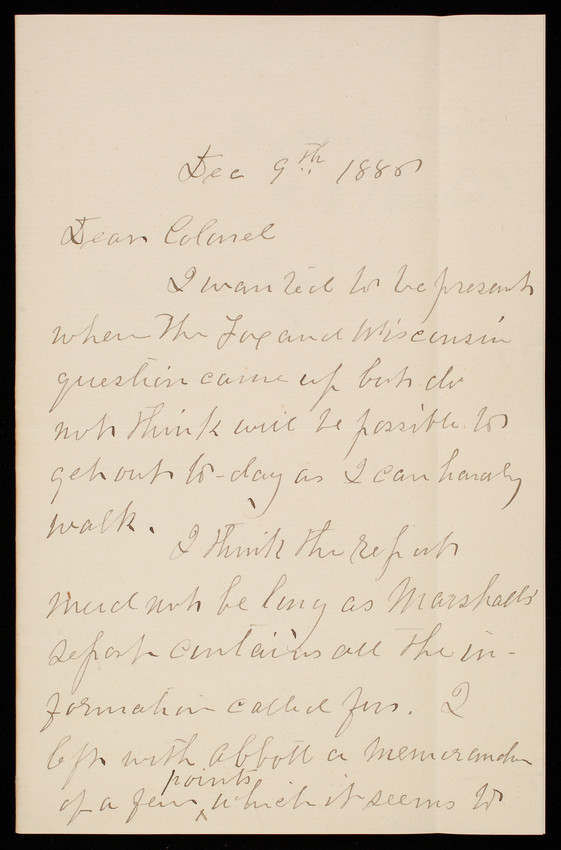 Dec 9th 1880
Dear Colonel
I wanted to be present
when the Fox and Wisconsin
question came up but do
not think will be possible to
get out to-day as I can hardly
walk.
I think the report
need not be long as Marshall's
report contains all the in-
formation called for. I
left with Abbott a memorandum
of a few points which it seems to